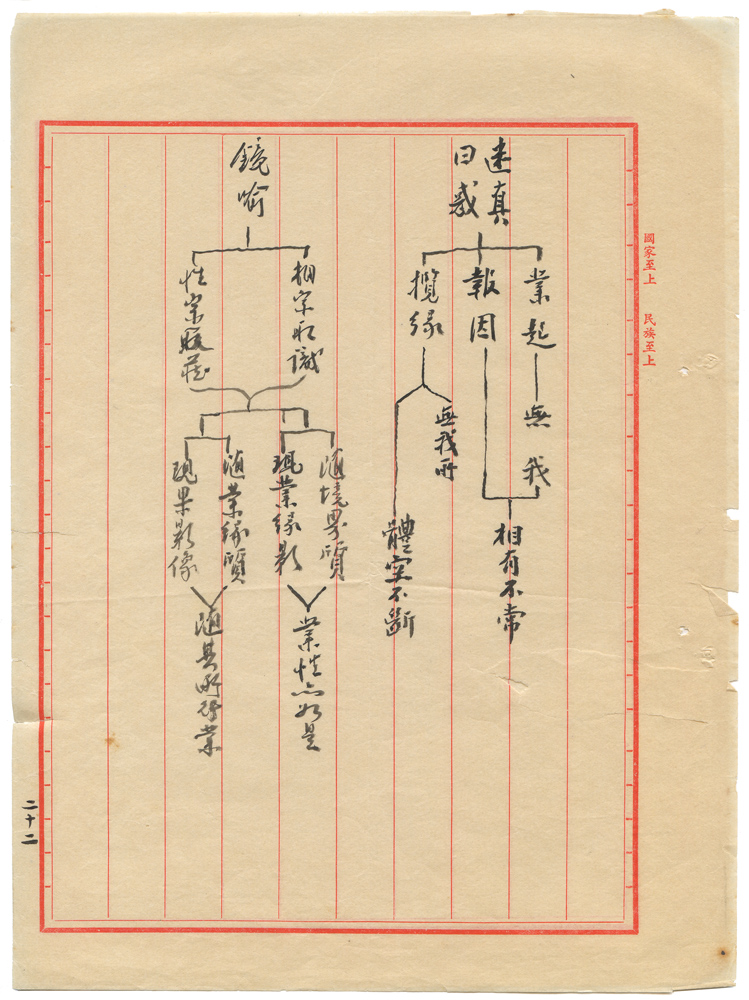 國家至上 民族至上
迷真
曰惑
業起
無我
報因
相有不常
攬緣
無我所
體空不斷
鏡喻
相宗取識
性宗取藏
隨境界質
現業緣影
業性亦如是
隨業緣質
現果影像
隨其所行業
二十二